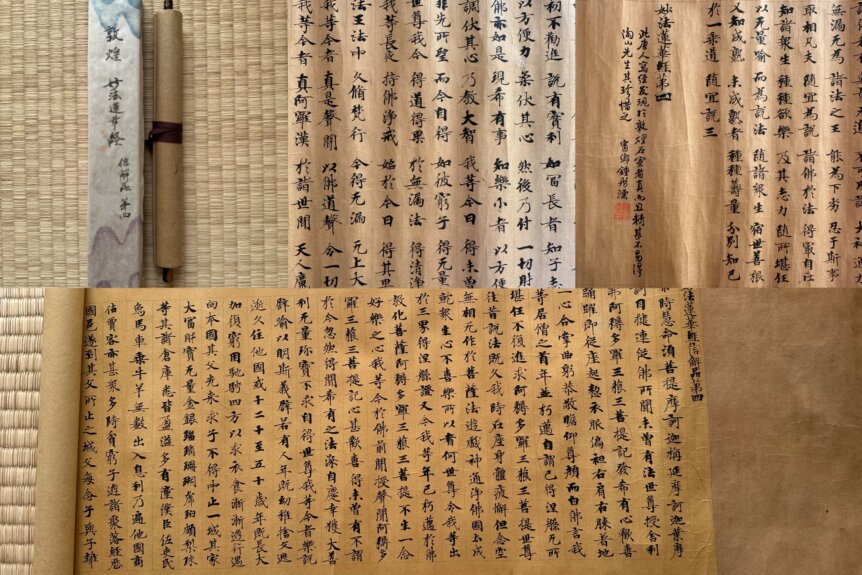 敦煌
妙法蓮華經
信解品 第四
初不勸進 說有實利 如富長者 知子志
以方便力 柔伏其心 然後乃付 一切財
佛亦如是 現希有事 知樂小者 以方便
調伏其心 乃教大智 我等今日 得未曾有
非先所望 而今自得 如彼窮子 得无量
世尊我今 得道得果 於無漏法 得清淨
我等長夜 持佛淨戒 始於今日 得其果
法王法中 久脩梵行 今得无漏 无上大
我等今者 真是聲聞 以佛道聲 令一切
我等今者 真阿羅漢 於諸世間 天人魔
無漏無為 諸法之王 能為下劣 忍于斯事
取相凡夫 隨宜為說 諸佛於法 得最自在
知諸眾生 種種欲樂 及其志力 隨所堪任
以无量喻 而為說法 隨諸眾生 宿世善根
又知成熟 未成熟者 種種籌量 分別知已
於一乘道 隨宜說三
妙法蓮華經第四
此唐人寫經發現於敦煌石室者真而且精甚不易得
陶山先生其珍惜之
甯鄉鍾彤澐
法蓮華經信解品第四
爾時慧命須菩提摩訶迦栴延摩訶迦葉摩
訶目揵連從佛所聞未曾有法世尊授舍利
弗阿耨多羅三藐三菩提記發希有心歡喜
踊躍即從座起整衣服偏袒右肩右膝著地
一心合掌曲躬恭敬瞻仰尊顏而白佛言我
等居僧之首年並朽邁自謂已得涅槃无所
堪任不復進求阿耨多羅三藐三菩提世尊
往昔說法既久我時在座身體疲懈但念空
無相无作於菩薩法遊戲神通淨佛國土成
就眾生心不喜樂所以者何世尊令我等出
於三界得涅槃證又今我等年已朽邁於佛
教化菩薩阿耨多羅三藐三菩提不生一念
好樂之心我等今於佛前聞授聲聞阿耨多
羅三藐三菩提記心甚歡喜得未曾有不謂
於今忽然得聞希有之法深自慶幸獲大善
利无量珍寶不求自得世尊我等今者樂說
譬喻以明斯義譬若有人年既幼稚捨父逃
逝久住他國或十二十至五十歲年既長大
加復窮困馳騁四方以求衣食漸漸遊行遇
向本國其父先來求子不得中止一城其家
大富財寶无量金銀瑠璃珊瑚虎珀頗梨珠
等其諸倉庫悉皆盈溢多有僮僕臣佐吏民
象馬車乘牛羊無數出入息利乃遍他國商
估賈客亦甚眾多時貧窮子遊諸聚落經歷
國邑遂到其父所止之城父母念子與子離